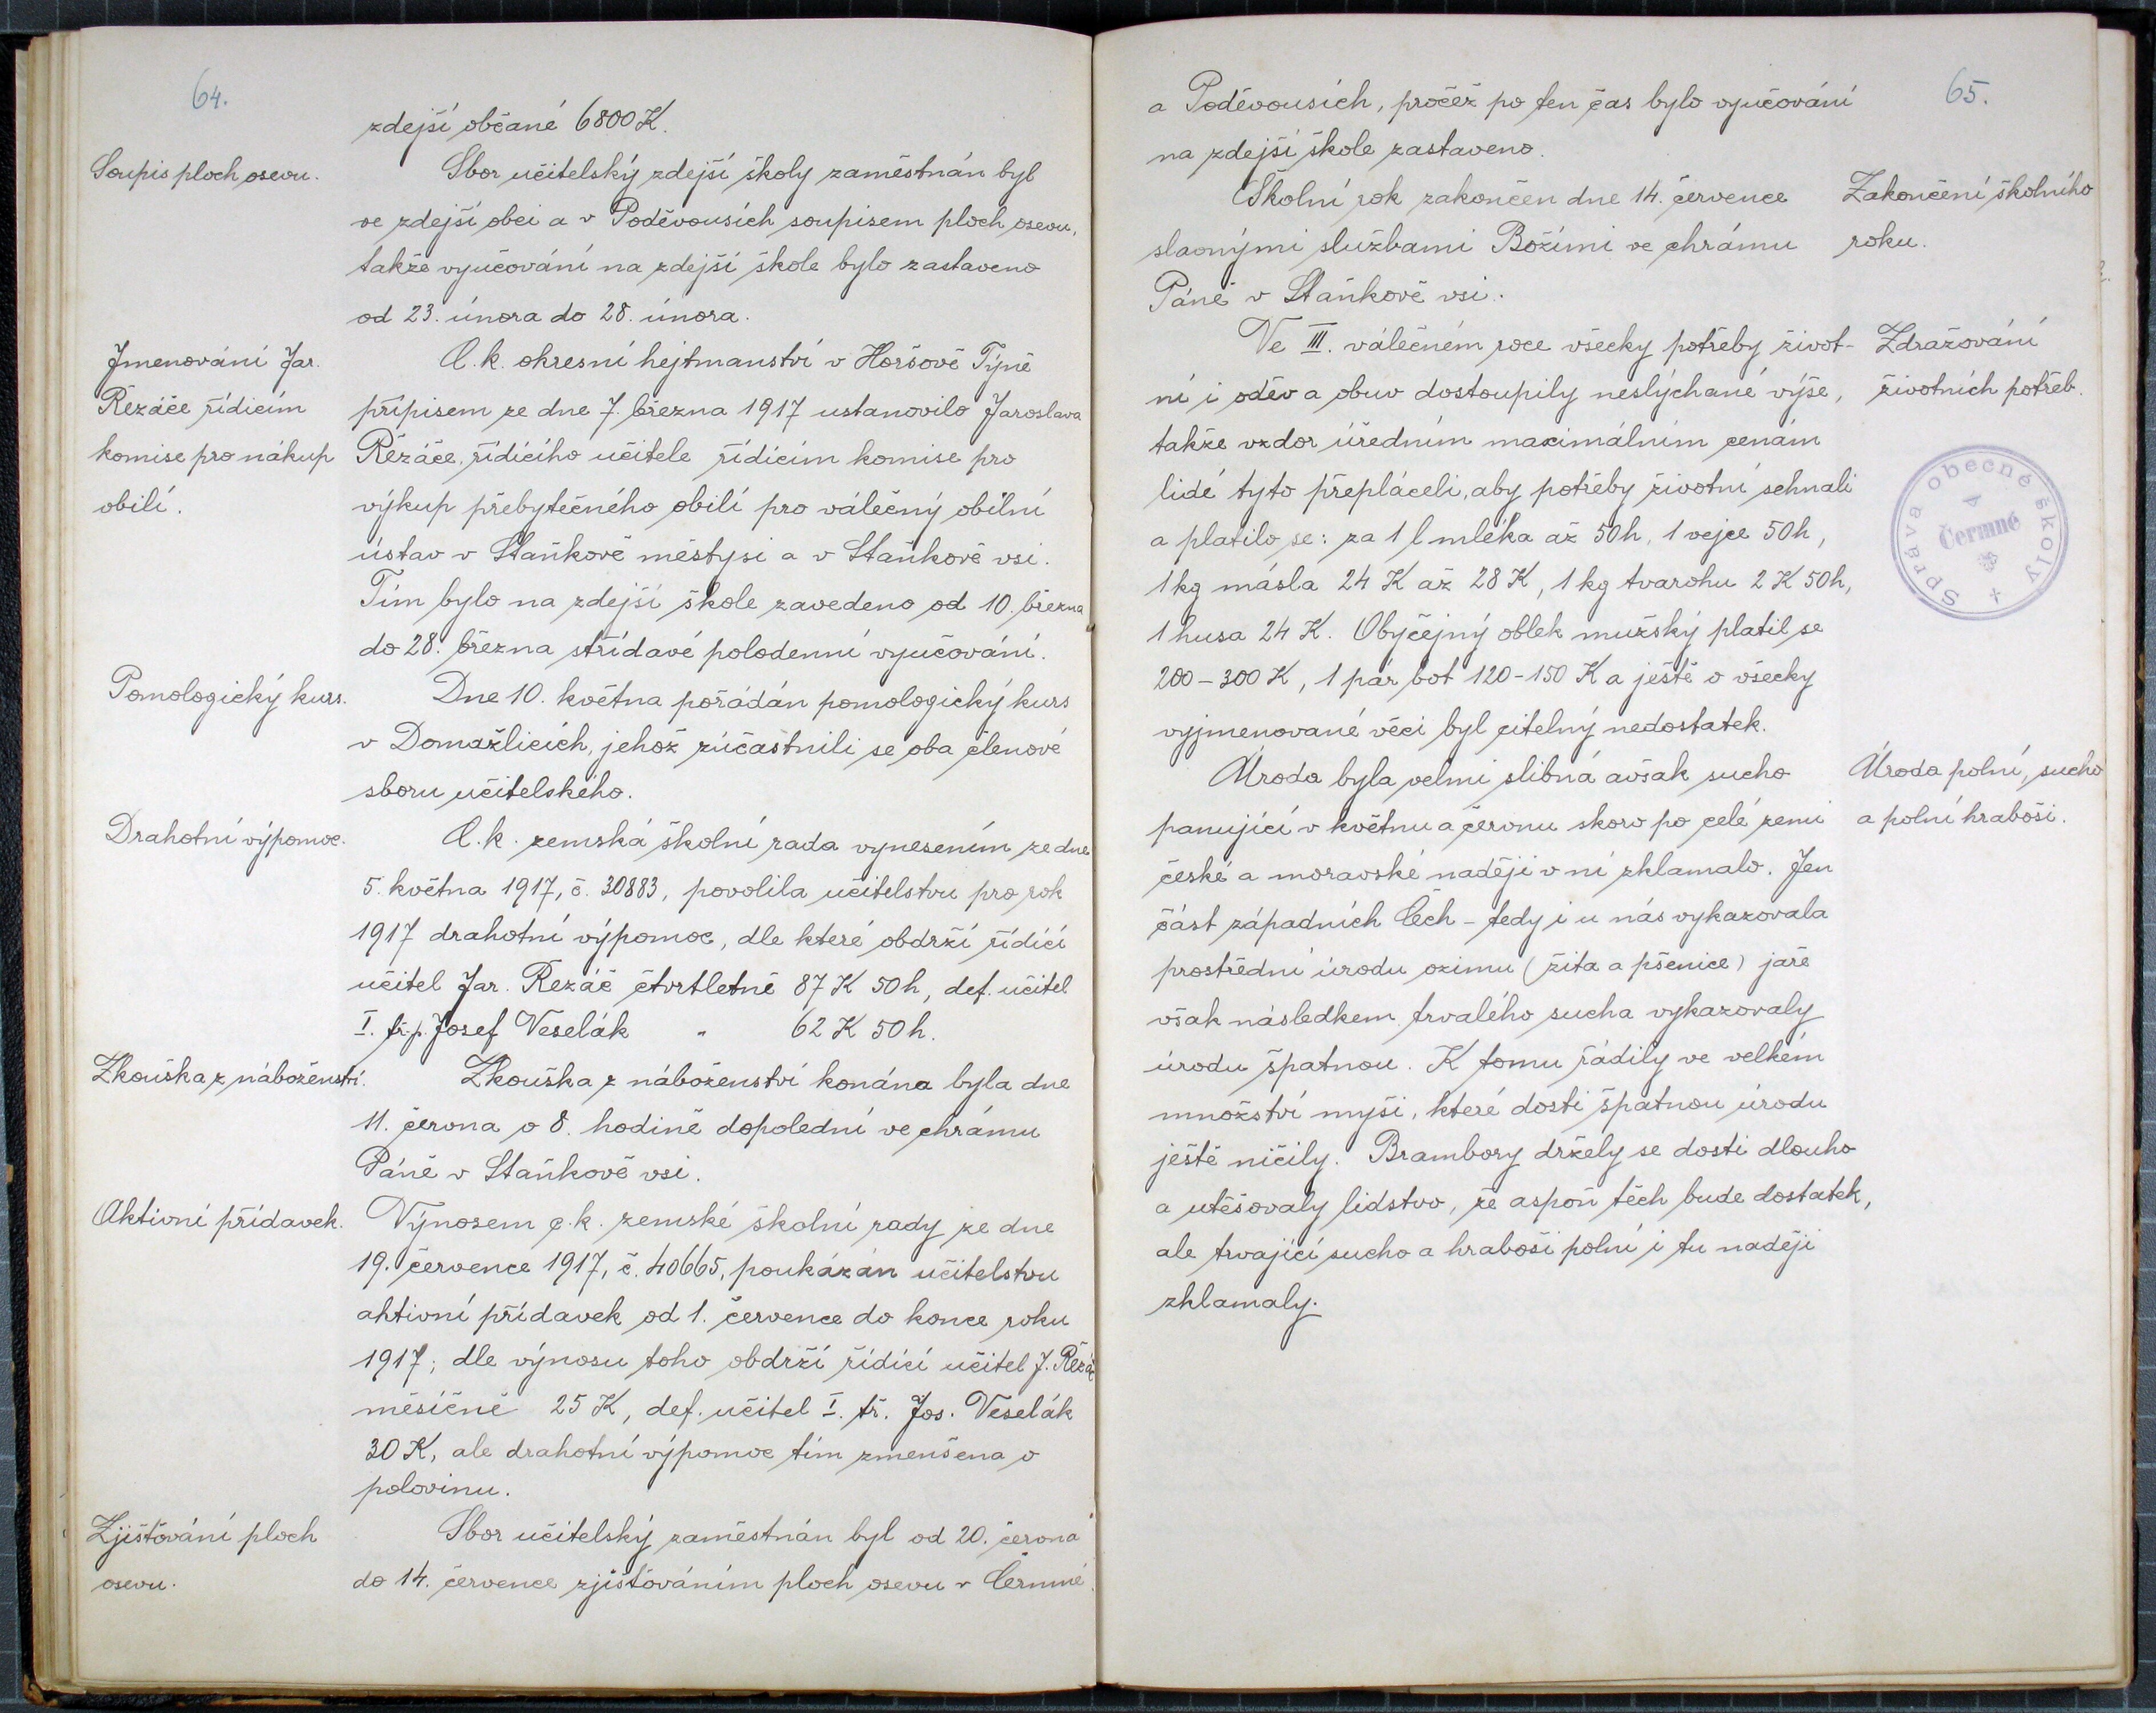 64.
zdejší občané 6800 K.
Soupis ploch osevu.
Sbor učitelský zdejší školy zaměstnán byl
ve zdejší obci a v Poděvousích soupisem ploch osevu,
takže vyučování na zdejší škole bylo zastaveno
od 23. února do 28. února.
Jmenování Jar.
Řezáče řídícím
komise pro nákup
obilí.
C. k. okresní hejtmanství v Horšově Týně
přípisem ze dne 7. března 1917 ustanovilo Jaroslava
Řezáče, řídícího učitele řídícím komise pro
výkup přebytečného obilí pro válečný obilní
ústav v Staňkově městysi a v Staňkově vsi.
Tím bylo na zdejší škole zavedeno od 10. března
do 28. března střídavé polodenní vyučování.
Pomologický kurs.
Dne 10. května pořádán pomologický kurs
v Domažlicích, jehož zúčastnili se oba členové
sboru učitelského.
Drahotní výpomoc.
C. k. zemská školní rada vynesením ze dne
5. května 1917, č. 30883, povolila učitelstvu pro rok
1917 drahotní výpomoc, dle které obdrží řídící
učitel Jar. Řezáč čtvrtletně 87 K 50 h, def. učitel
I. tř. p. Josef Veselák " 62 K 50 h.
Zkouška z náboženství.
Zkouška z náboženství konána byla dne
11. června o 8. hodině dopolední ve chrámu
Páně v Staňkově vsi.
Aktivní přídavek.
Výnosem c. k. zemské školní rady ze dne
19. července 1917, č. 40665, poukázán učitelstvu
aktivní přídavek od 1. července do konce roku
1917; dle výnosu toho obdrží řídící učitel J. Řezáč
měsíčně 25 K, def. učitel I. tř. Jos. Veselák
30 K, ale drahotní výpomoc tím zmenšena o
polovinu.
Zjišťování ploch
osevu.
Sbor učitelský zaměstnán byl od 20. června
do 14. července zjišťováním ploch osevu v Čermné
65.
a Poděvousích, pročež po ten čas bylo vyučování
na zdejší škole zastaveno.
Školní rok zakončen dne 14. července
slavnými službami Božími ve chrámu
Páně v Staňkově vsi.
Zakončení školního
roku.
Ve III. válečném roce všecky potřeby život-
ní i oděv a obuv dostoupily neslýchané výše,
takže vzdor úředním maximálním cenám
lidé tyto přepláceli, aby potřeby životní sehnali
a platilo se: za 1 l mléka až 50 h, 1 vejce 50 h,
1 kg másla 24 K až 28 K, 1 kg tvarohu 2 K 50 h,
1 husa 24 K. Obyčejný oblek mužský platil se
200 - 300 K, 1 pár bot 120 - 150 K a ještě o všecky
vyjmenované věci byl citelný nedostatek.
Zdražování
životních potřeb.
Správa obecné školy
v
Čermné
Úroda byla velmi slibná avšak sucho
panující v květnu a červnu skoro po celé zemi
české a moravské naději v ní zklamalo. Jen
část západních Čech - tedy i u nás vykazovala
prostřední úrodu ozimu (žita a pšenice) jaře
však následkem trvalého sucha vykazovaly
úrodu špatnou. K tomu řádily ve velkém
množství myši, které dosti špatnou úrodu
ještě ničily. Brambory držely se dosti dlouho
a utěšovaly lidstvo, že aspoň těch bude dostatek,
ale trvající sucho a hraboši polní i tu naději
zklamaly.
Úroda polní, sucho
a polní hraboši.